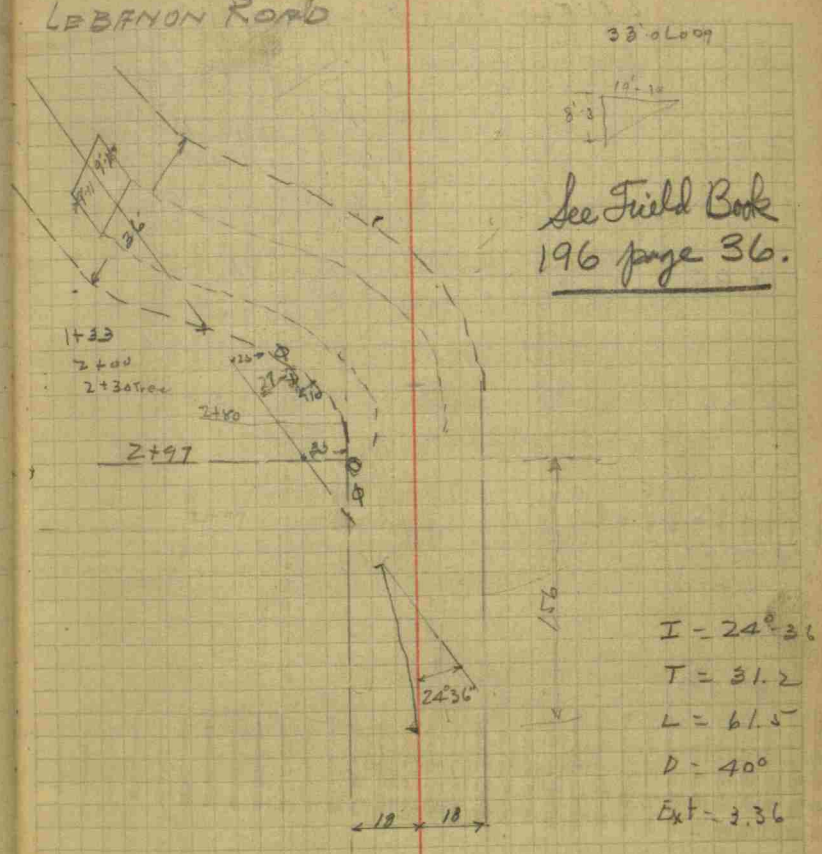 LEBANON ROAD
33'-0 Long
19'-10
8'-3
See Field Book
196 page 36.
36'
1+33
2+00
2+30 Tree
2+80
2+97
156
24°36'
I = 24°-36
T = 31.2
L = 61.5
D = 40°
Ext = 3.36
18
18